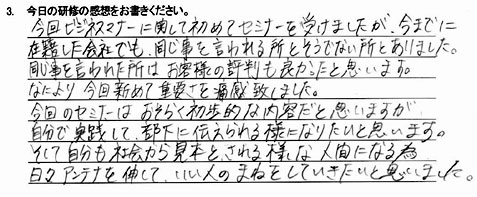 3. 今日の研修の感想をお書きください。
今回ビジネスマナーに関して初めてセミナーを受けましたが、今までに
在籍した会社でも、同じ事を言われる所とそうでない所とありました。
同じ事を言われた所はお客様の評判も良かったと思います。
なにより今回新めて重要さを痛感致しました。
今回のセミナーはおそらく初歩的な内容だと思いますが
自分で実践して、部下に伝えられる様になりたいと思います。
そして自分も社会から見本とされる様な人間になる為
日々アンテナを伸して、いい人のまねをしていきたいと思いました。